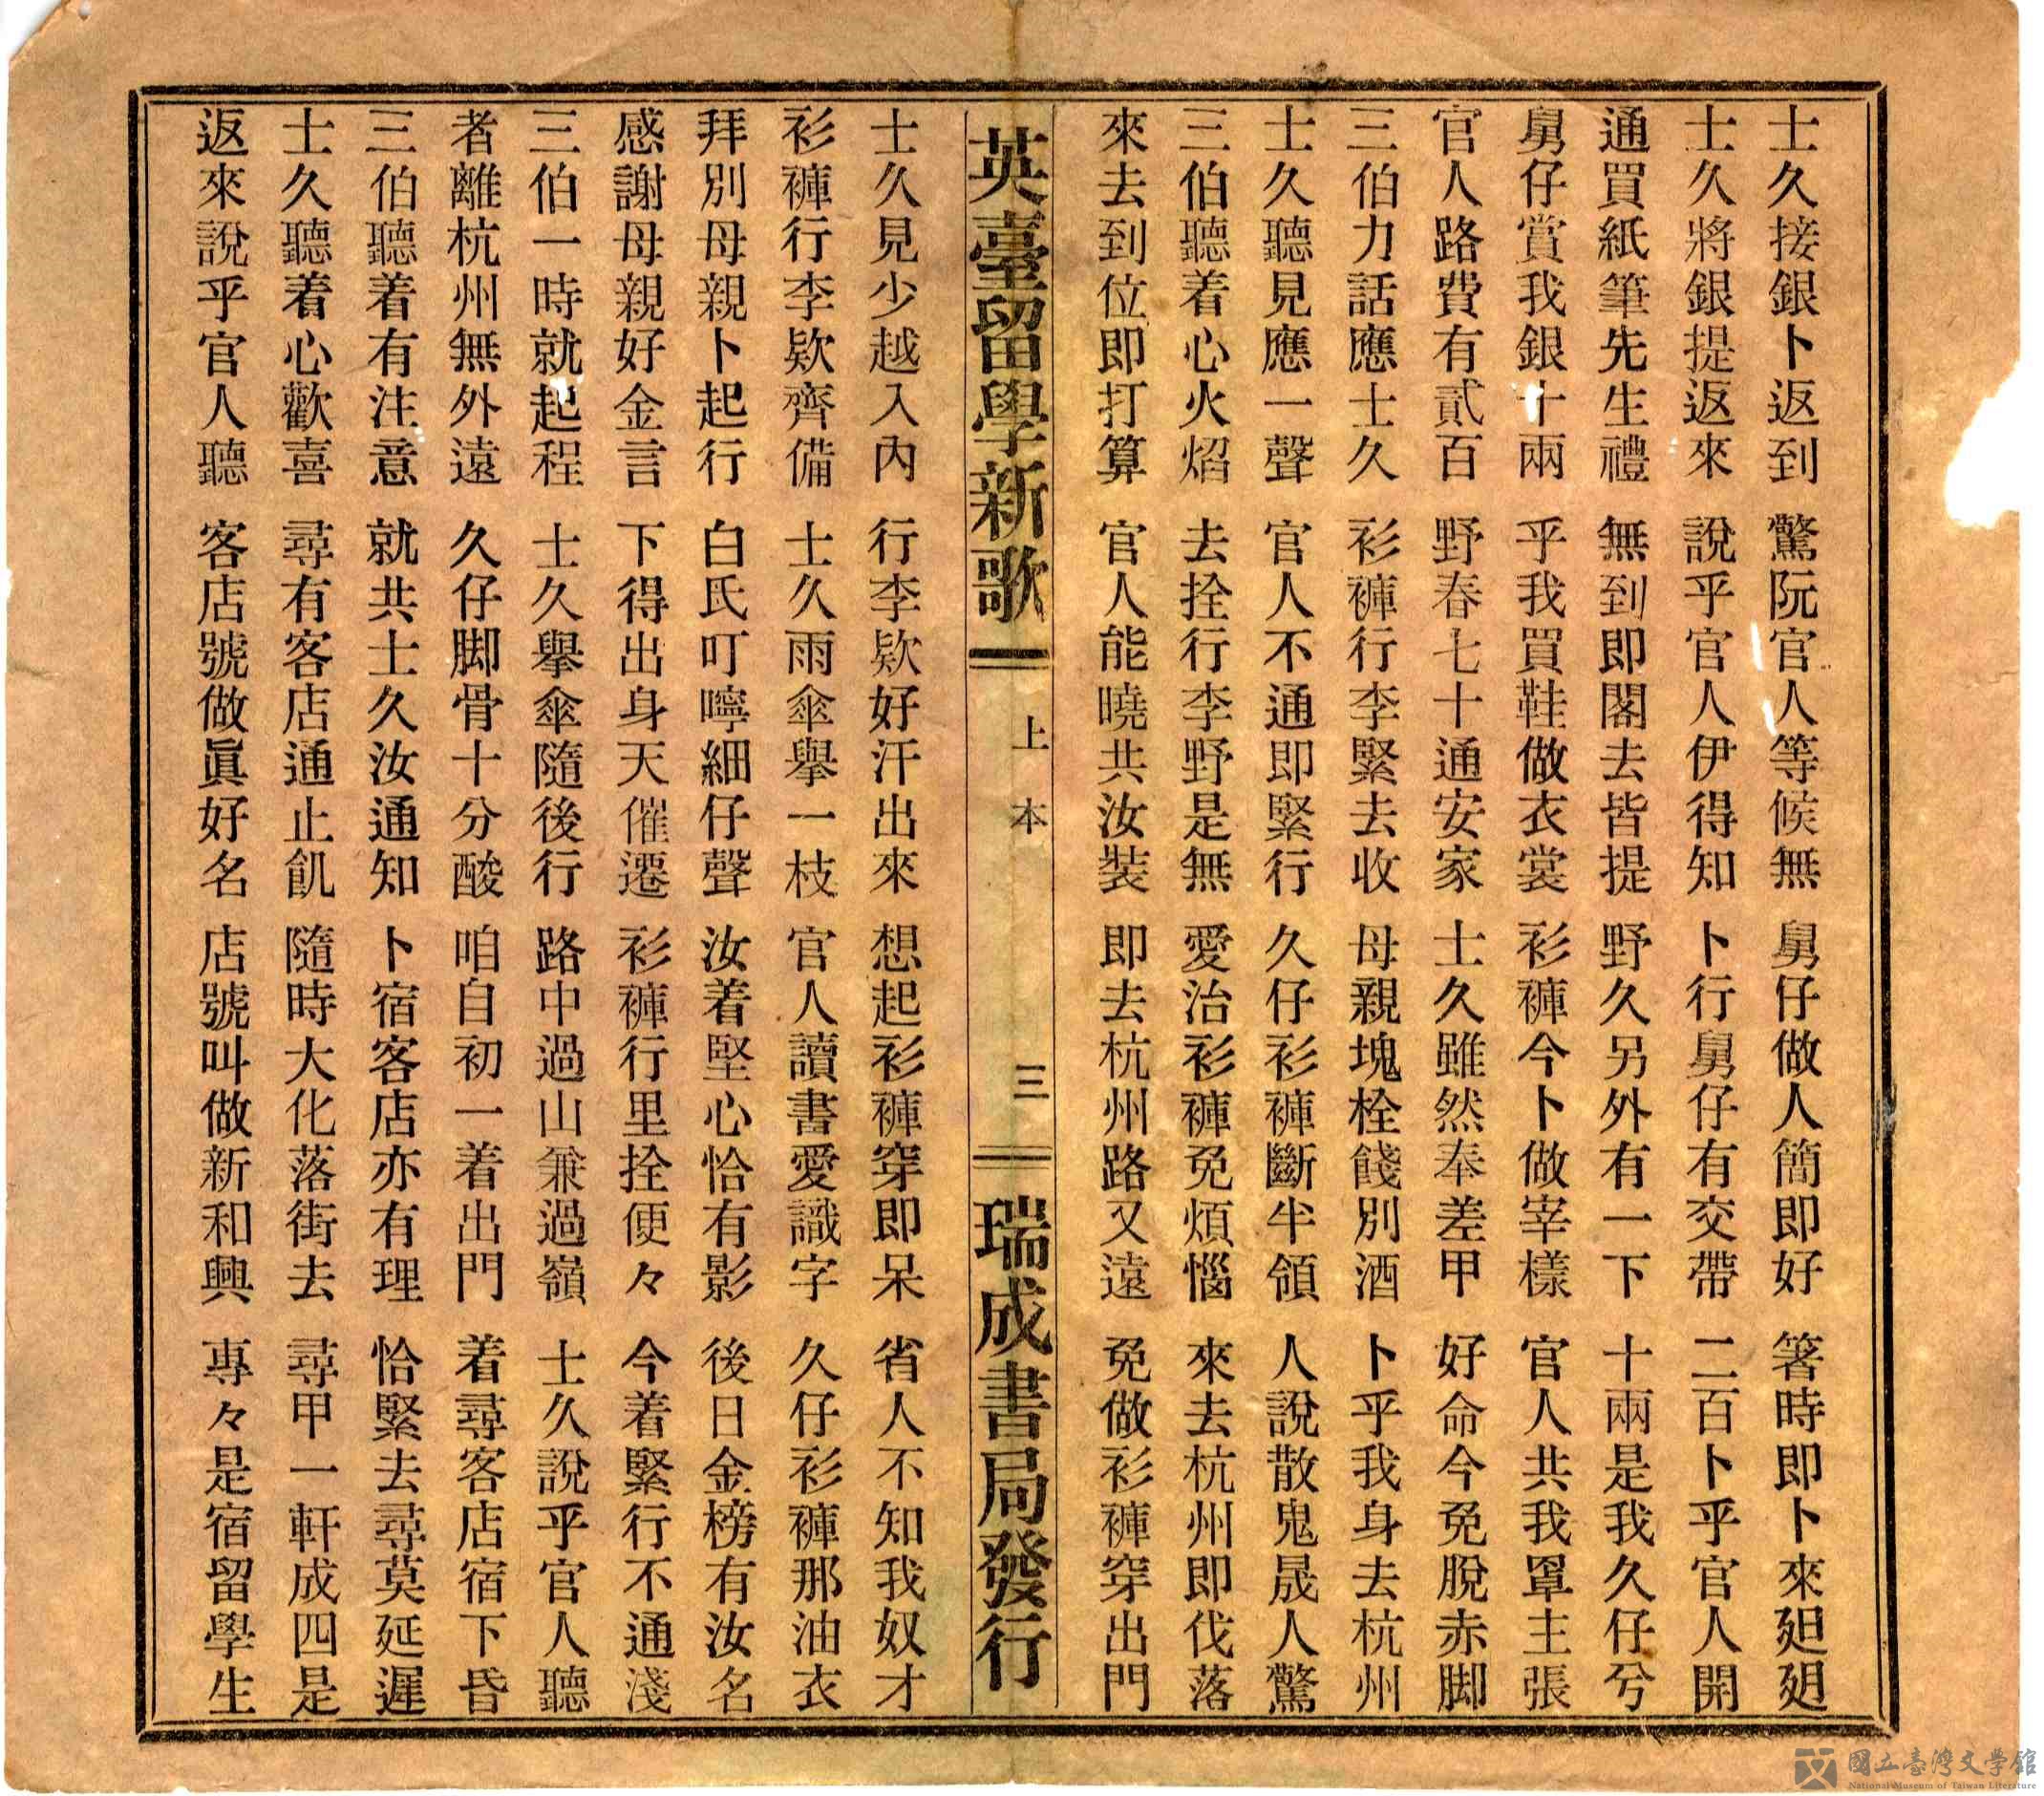 士久接銀卜返到 驚阮官人等候無 舅仔做人簡即好 箸時即卜來廻廻
士久將銀提返來 說乎官人伊得知 卜行舅仔有交帶 二百卜乎官人開
通買紙筆先生禮 無到即閣去皆提 野久另外有一下 十兩是我久仔兮
舅仔賞我銀十兩 乎我買鞋做衣裳 衫褲今卜做宰樣 官人共我罩主張
官人路費有貳百 野春七十通安家 士久雖然奉差甲 好命今免脫赤脚
三伯力話應士久 衫褲行李緊去收 母親塊栓餞別酒 卜乎我身去杭州
士久聽見應一聲 官人不通即緊行 久仔衫褲斷半領 人說散鬼晟人驚
三伯聽着心火焰 去拴行李野是無 愛治衫褲免煩惱 來去杭州即伐落
來去到位即打算 官人能曉共汝裝 即去杭州路又遠 免做衫褲穿出門
英臺留學新歌一 上本 三 瑞成書局發行
士久見少越入內 行李欵好汗出來 想起衫褲穿即呆 省人不知我奴才
衫褲行李欵齊備 士久雨傘擧一枝 官人讀書愛識字 久仔衫褲那油衣
拜別母親卜起行 白氏叮嚀細仔聲 汝着堅心恰有影 後日金榜有汝名
感謝母親好金言 下得出身天催遷 衫褲行里拴便々 今着緊行不通淺
三伯一時就起程 士久擧傘隨後行 路中過山兼過嶺 士久說乎官人聽
者離杭州無外遠 久仔脚骨十分酸 咱自初一着出門 着尋客店宿下昏
三伯聽着有注意 就共士久汝通知 卜宿客店亦有理 恰緊去尋莫延遲
士久聽着心歡喜 尋有客店通止飢 隨時大化落街去 尋甲一軒成四是
返來說乎官人聽 客店號做眞好名 店號叫做新和興 專々是宿留學生
國立臺灣文學館
National Museum of Taiwan Literature